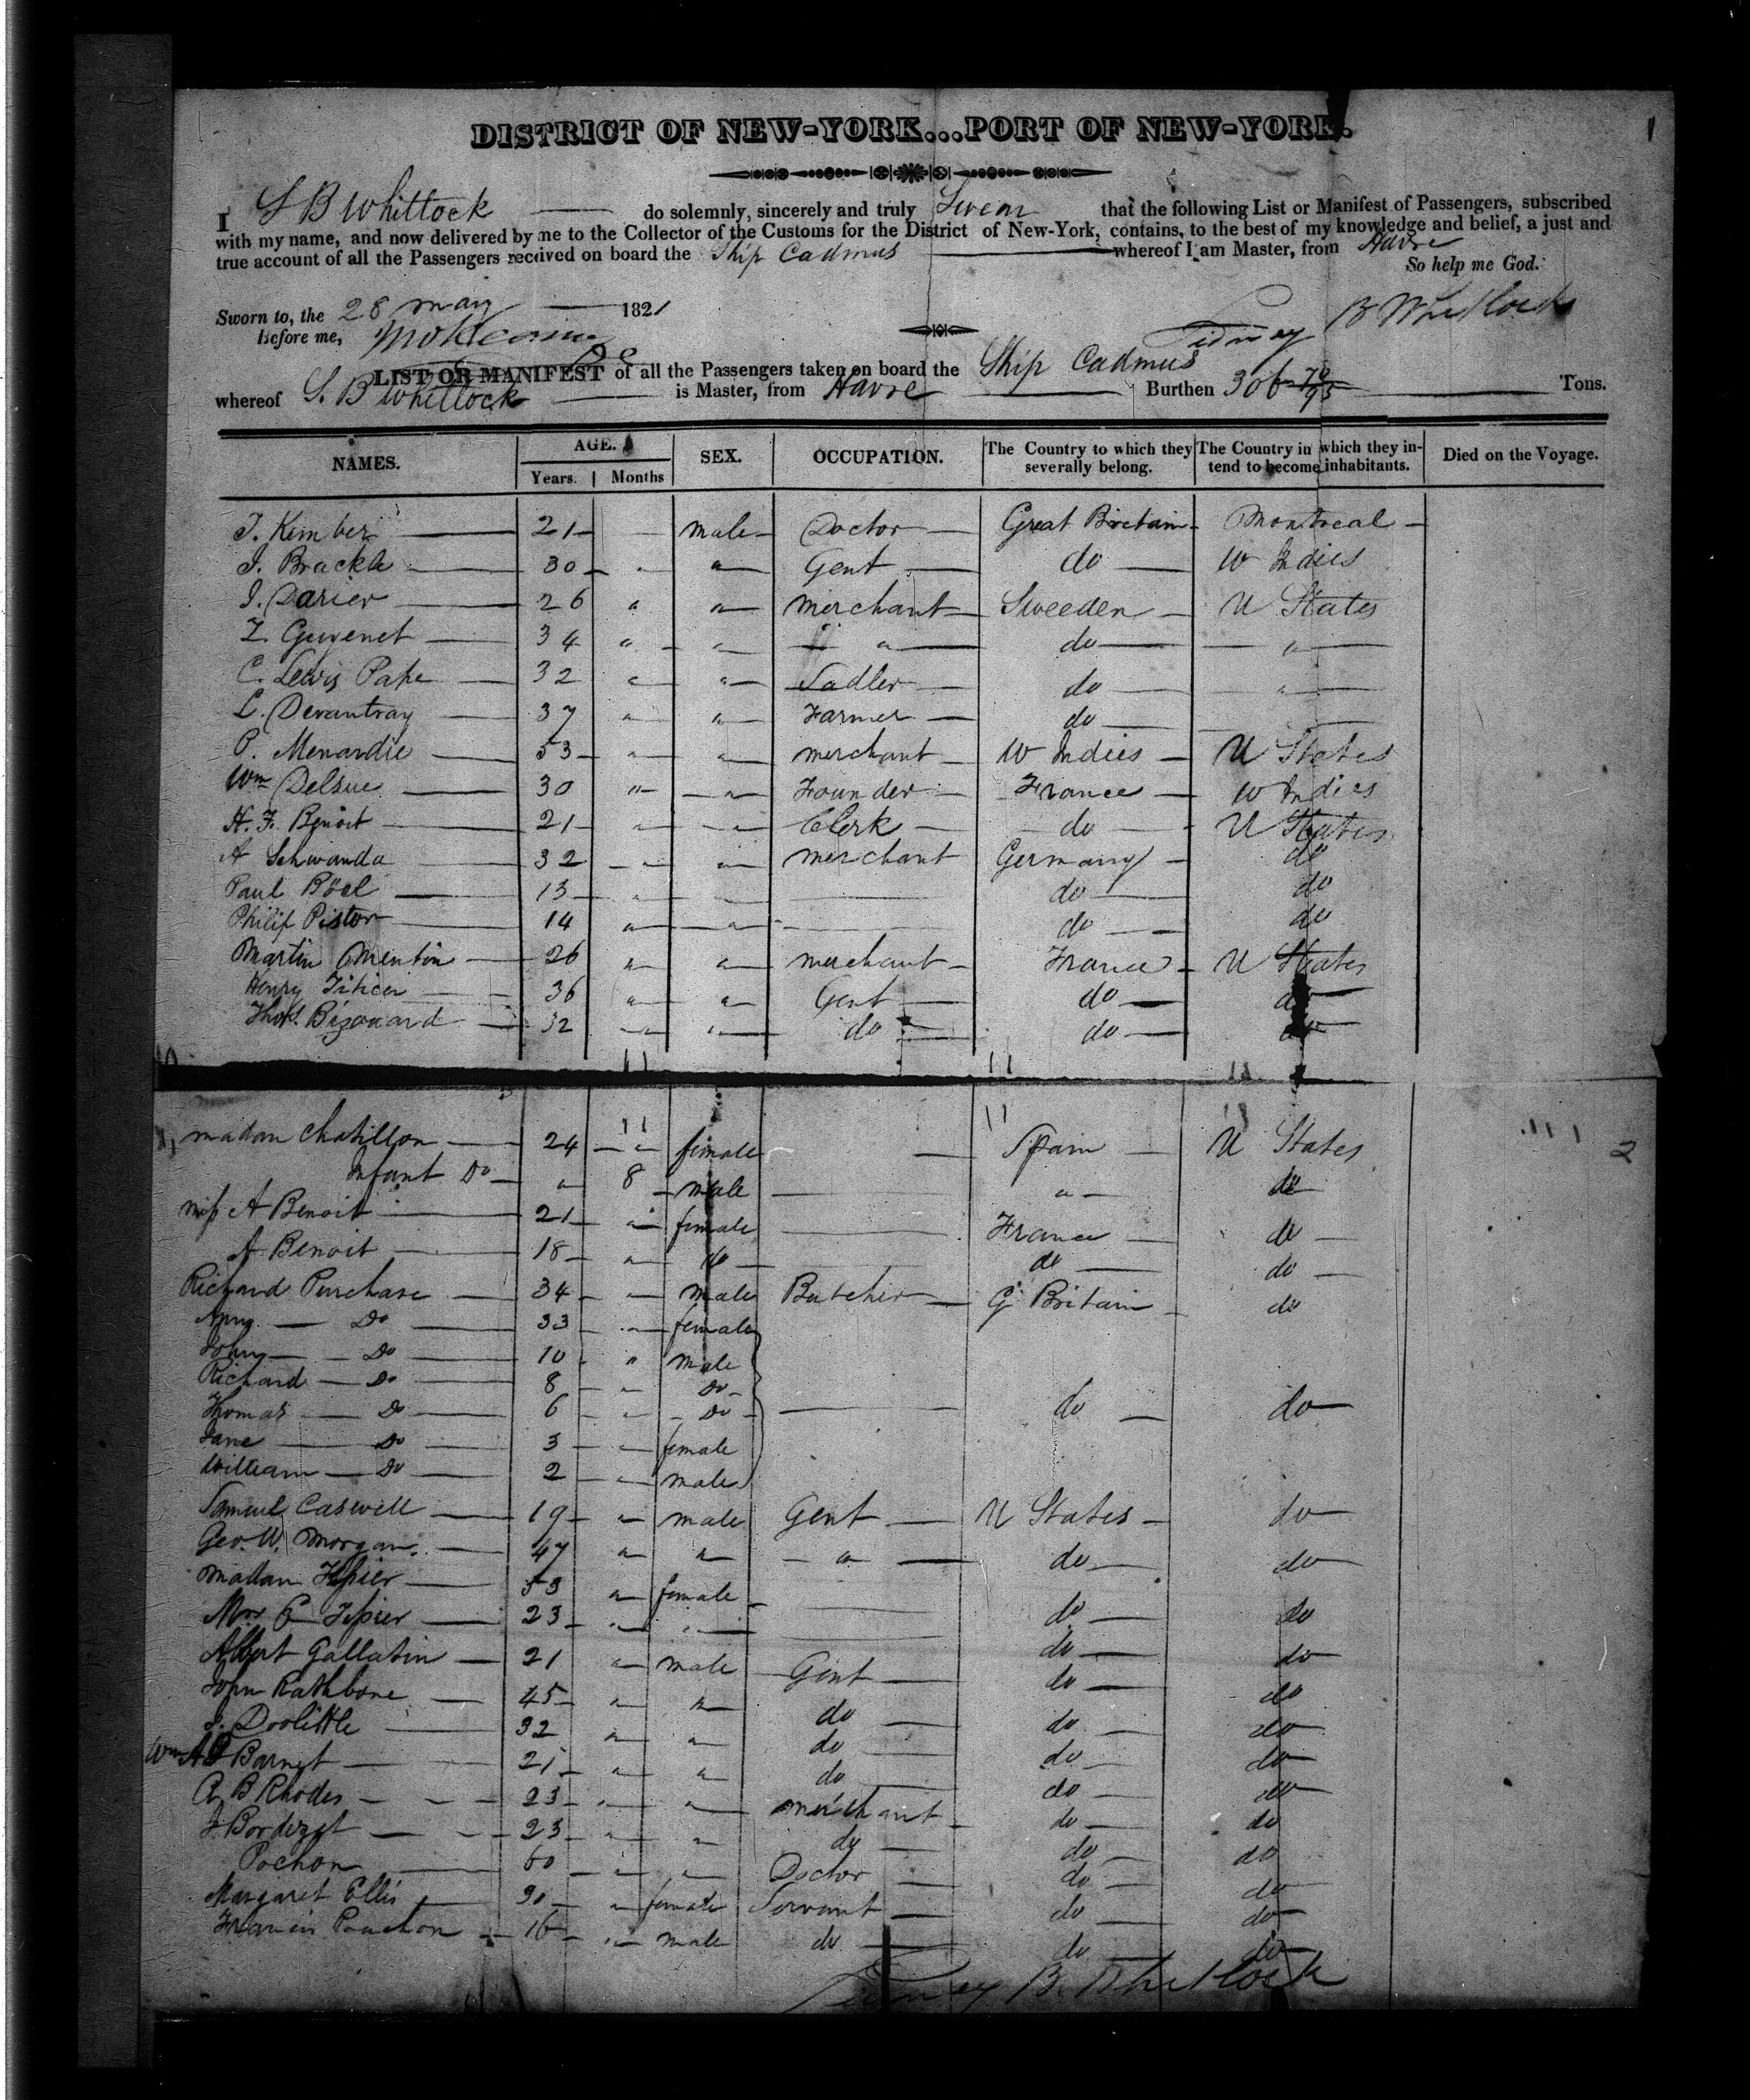 1
DISTRICT OF NEW-YORK...PORT OF NEW-YORK.
I S B Whitlock do solemnly, sincerely and truly Swear that the following List or Manifest of Passengers, subscribed
with my name, and now delivered by me to the Collector of the Customs for the District of New-York, contains, to the best of my knowledge and belief, a just and
true account of all the Passengers received on board the Ship Cadmus whereof I am Master, from Havre
So help me God.
Sworn to, the 28 May 1821
Before me,
Sidney B Whitlock
LIST OR MANIFEST of all the Passengers taken on board the Ship Cadmus
whereof S. B Whitlock is Master, from Havre Burthen 306 70/95 Tons.
NAMES. AGE. Years. Months SEX. OCCUPATION. The Country to which they severally belong. The Country in which they intend to become inhabitants. Died on the Voyage.
J. Kimber 21 male Doctor Great Brietain Montreal
J. Brackle 30 " " Gent do W Indies
J. Darier 26 " " merchant Sweeden U States
Z. Guvenet 34 " " " do "
C. Lewis Pape 32 " " Sadler do "
L. Devantray 37 " " Farmer do
P. Menardie 53 " " merchant W Indies U States
Wm Delsue 30 " " Founder France W Indies
H. F. Benoit 21 " " Clerk do U States
A Schwanda 32 " " merchant Germany do
Paul Böel 13 " " do do
Philip Pistor 14 " " do do
Martin Mentin 26 " " merchant France U States
Henry 36 " " Gent do do
Thos. Bizouard 32 " " do do do
madam Chatillon 24 " female Spain U States 2
Infant Do " 8 male " do
miss A Benoit 21 " female France do
A Benoit 18 " do do do
Richard Purchase 34 " male Butcher G Britain do
Ann Do 33 " female
John Do 10 " male
Richard Do 8 " Do
Thomas Do 6 " Do do do
Jane Do 3 " female
William Do 2 " male
Samuel Caswell 19 " male Gent U States do
Geo. W. Morgan 47 " " " do do
Madam Tepier 53 " female do do
Mrs C Tepier 23 " " do do
Albert Gallatin 21 " male Gent do do
John Rathbone 45 " " do do do
J. Doolittle 32 " " do do do
Wm A Barnet 21 " " do do do
A B Rhodes 23 " " merchant do do
J Bordezet 23 " " do do do
Pochon 60 " " Doctor do do
Margaret Ellis 30 " female Servant do do
Francis Pouchon 16 " male do do do
Sidney B. Whitlock